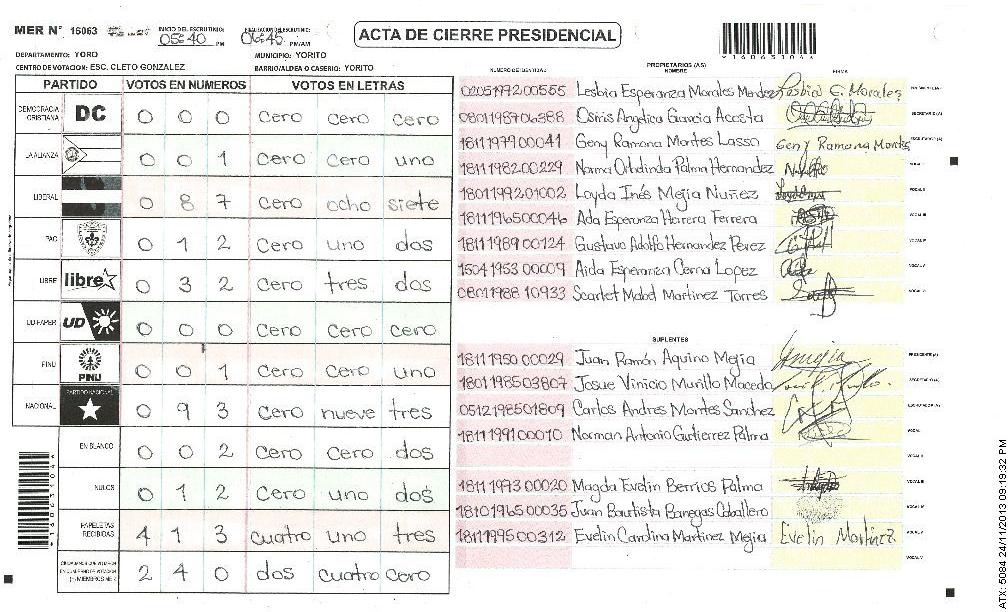 MER N° 16063
INICIO DEL ESCRUTINIO: 05:40 PM
FINALIZACION DEL ESCRUTINIO: 06:45 PM/AM
ACTA DE CIERRE PRESIDENCIAL
*16063104*
DEPARTAMENTO: YORO
MUNICIPIO: YORITO
CENTRO DE VOTACION: ESC. CLETO GONZALEZ
BARRIO/ALDEA O CASERIO: YORITO
PARTIDO VOTOS EN NUMEROS VOTOS EN LETRAS
DEMOCRACIA CRISTIANA DC 0 0 0 cero cero cero
LA ALIANZA 0 0 1 cero cero uno
LIBERAL 0 8 7 cero ocho siete
PAC 0 1 2 cero uno dos
LIBRE libre 0 3 2 cero tres dos
UD FAPER UD 0 0 0 cero cero cero
PINU PINU 0 0 1 cero cero uno
NACIONAL PARTIDO NACIONAL 0 9 3 cero nueve tres
EN BLANCO 0 0 2 cero cero dos
NULOS 0 1 2 cero uno dos
PAPELETAS RECIBIDAS 4 1 3 cuatro uno tres
2 4 0 dos cuatro cero
*16063104*
PROPIETARIOS (AS)
NUMERO DE IDENTIDAD NOMBRE FIRMA
0205197200555 Lesbia Esperanza Morales Mendez Lesbia E. Morales PRESIDENTE (A)
0801198706388 Osiris Angelica Garcia Acosta SECRETARIO (A)
1811197900041 Geny Ramona Montes Lasso Geny Ramona Montes ESCRUTADOR (A)
1811198200229 Norma Orbdinda Palma Hernandez VOCAL I
1801199201002 Loyda Inés Mejia Nuñez VOCAL II
1811196500046 Ada Esperanza Herrera Ferrera VOCAL III
1811198900124 Gustavo Adolfo Hernandez Perez VOCAL IV
1504195300009 Aida Esperanza Cerna Lopez VOCAL V
0801198810933 Scarlet Mabel Martinez Torres
SUPLENTES
1811195000029 Juan Ramón Aquino Mejia PRESIDENTE (A)
1801198503807 Josue Vinicio Murillo Macedo SECRETARIO (A)
0512198501809 Carlos Andres Montes Sanchez ESCRUTADOR (A)
1811199100010 Norman Antonio Gutierrez Palma VOCAL I
VOCAL II
1811197300020 Magda Evelin Berrios Palma VOCAL III
1810196500035 Juan Bautista Banegas Caballero VOCAL IV
1811199500312 Evelin Carolina Martinez Mejia Evelin Martinez VOCAL V
ATX: 5084 24/11/2013 09:19:32 PM